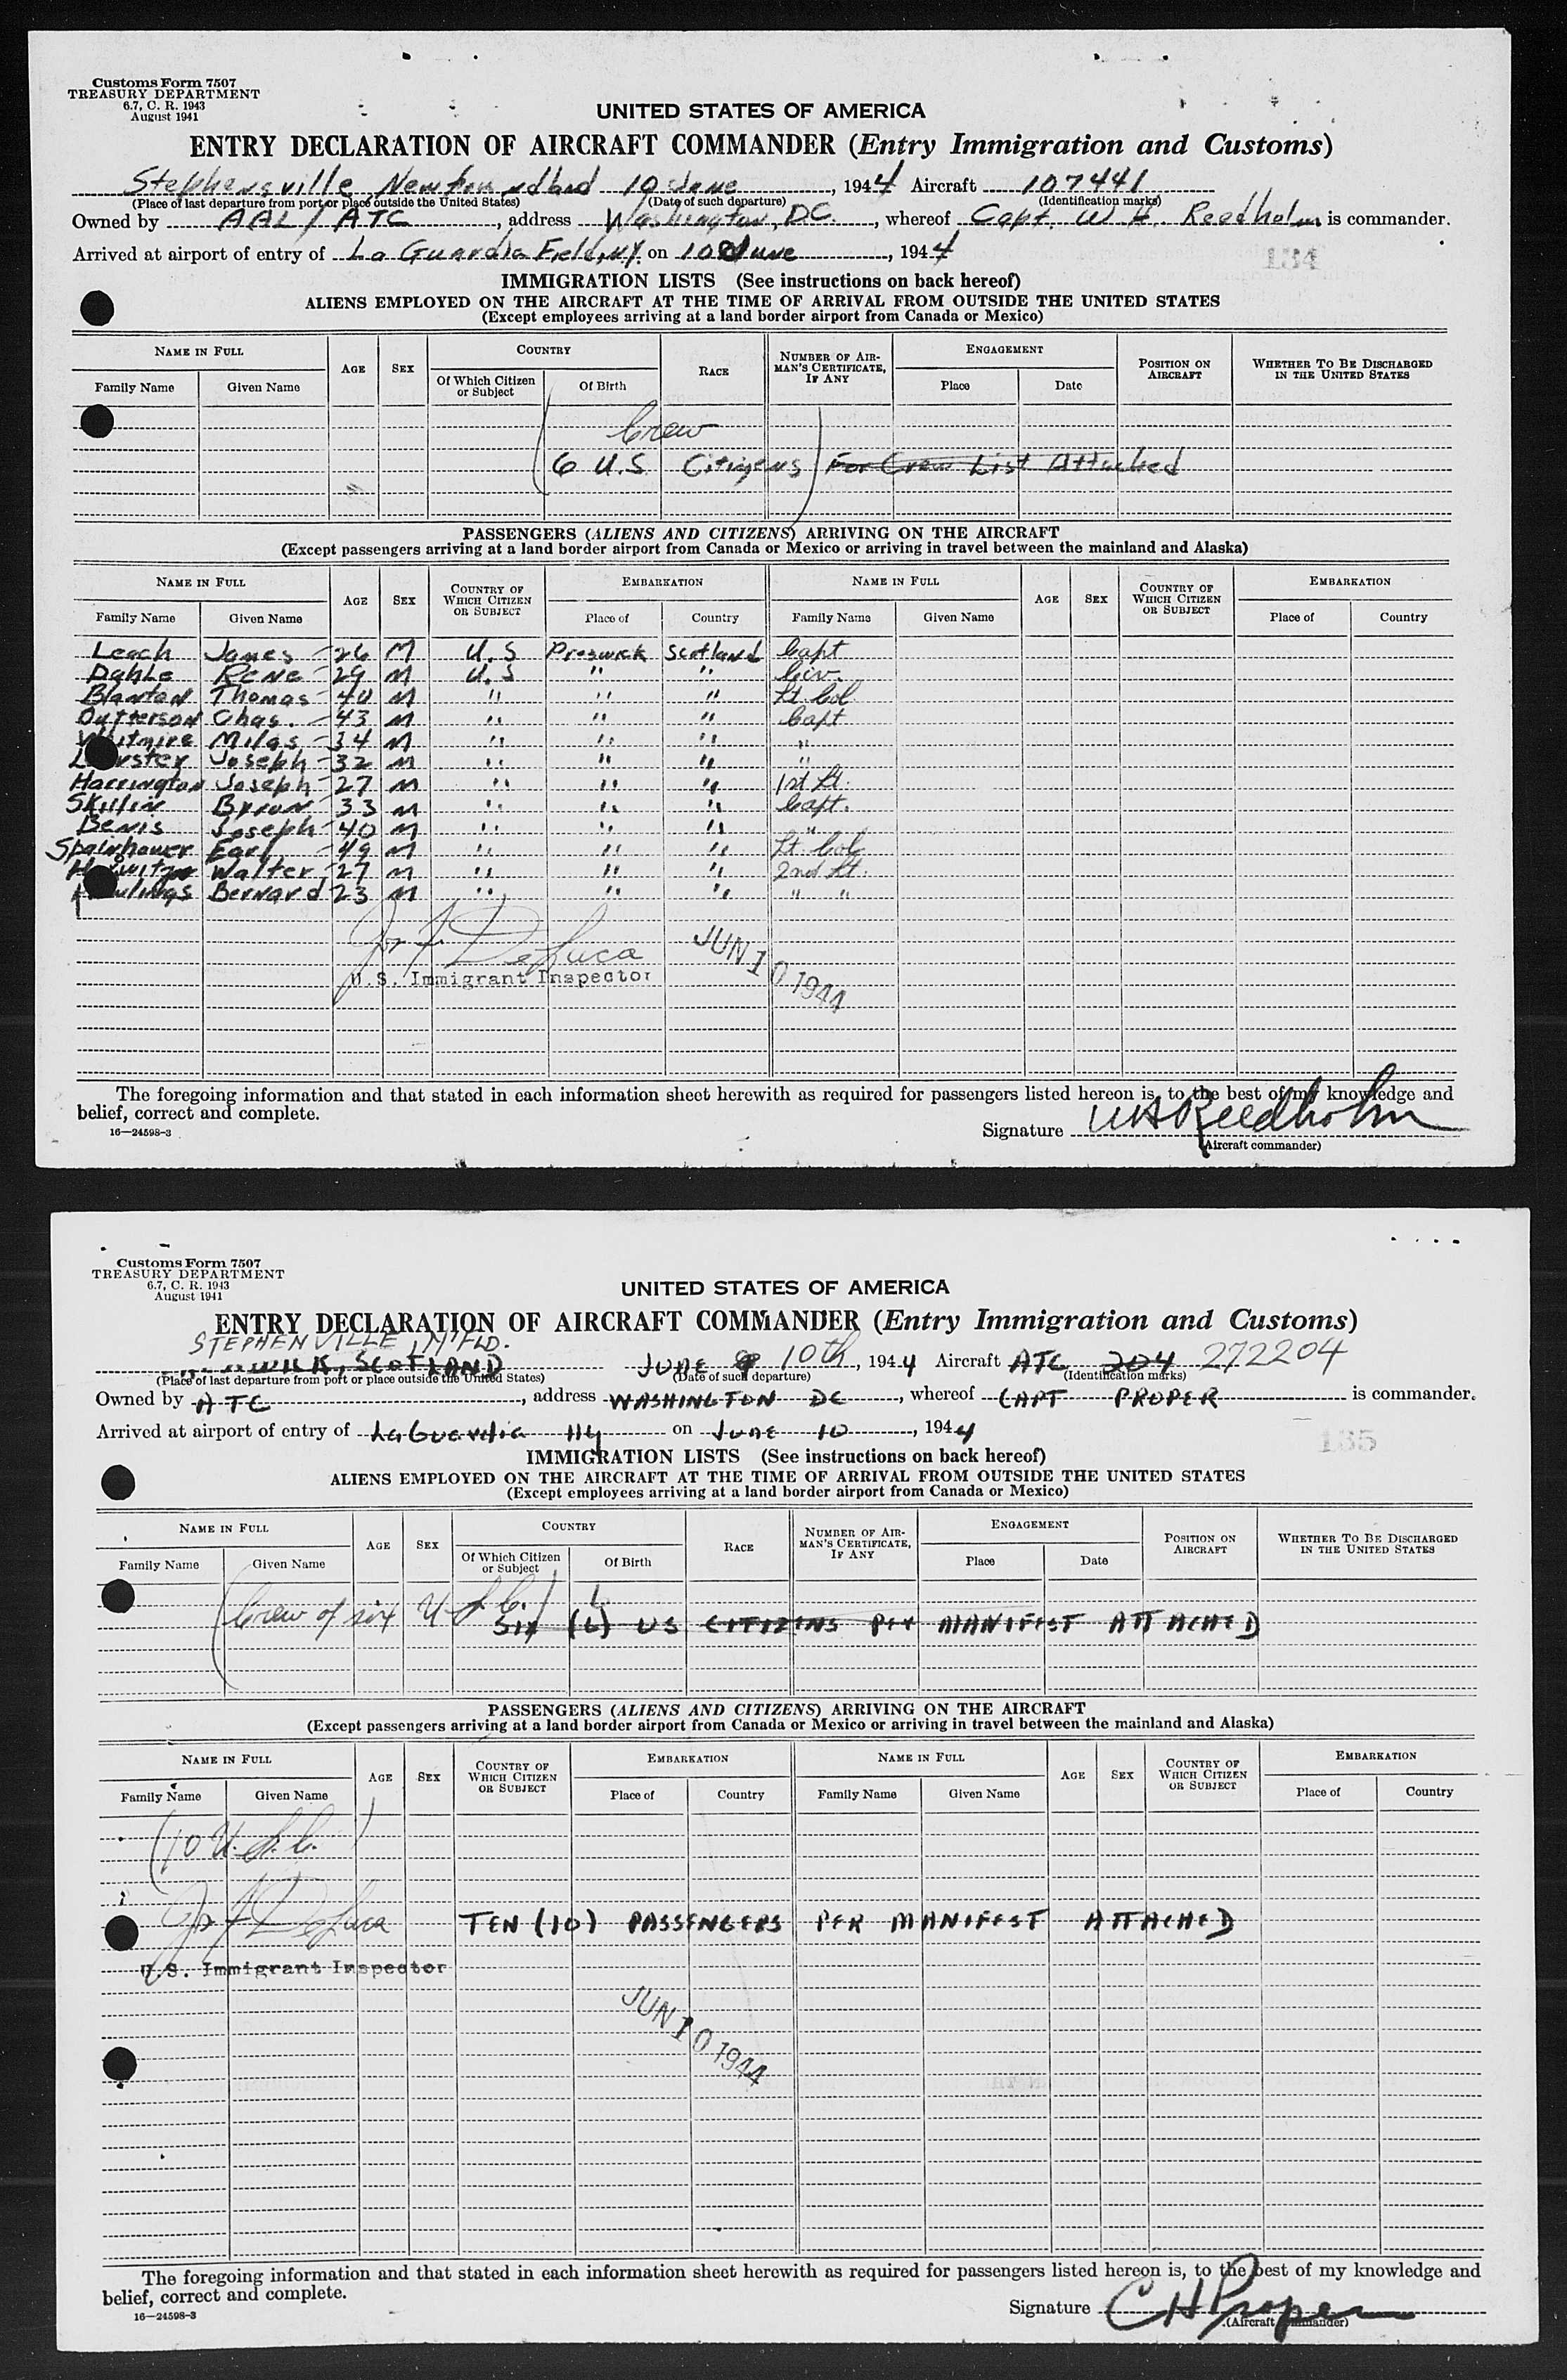 Customs Form 7507
TREASURY DEPARTMENT
6.7, C. R. 1943
August 1941
UNITED STATES OF AMERICA
ENTRY DECLARATION OF AIRCRAFT COMMANDER (Entry Immigration and Customs)
Stephensville Newfoundland 10 June, 1944 Aircraft 107441
(Place of last departure from port or place outside the United States) (Date of such departure) (Identification marks)
Owned by AAL / ATC, address Washington, DC., whereof Capt. W H. Reedholm is commander.
Arrived at airport of entry of La Guardia Field, NY. on 10 June, 1944
134
IMMIGRATION LISTS (See instructions on back hereof)
ALIENS EMPLOYED ON THE AIRCRAFT AT THE TIME OF ARRIVAL FROM OUTSIDE THE UNITED STATES
(Except employees arriving at a land border airport from Canada or Mexico)
NAME IN FULL AGE SEX COUNTRY RACE NUMBER OF AIRMAN'S CERTIFICATE, IF ANY ENGAGEMENT POSITION ON AIRCRAFT WHETHER TO BE DISCHARGED IN THE UNITED STATES
Family Name Given Name Of Which Citizen or Subject Of Birth Place Date
Crew
6 U.S Citizens For Crew List Attached
PASSENGERS (ALIENS AND CITIZENS) ARRIVING ON THE AIRCRAFT
(Except passengers arriving at a land border airport from Canada or Mexico or arriving in travel between the mainland and Alaska)
NAME IN FULL AGE SEX COUNTRY OF WHICH CITIZEN OR SUBJECT EMBARKATION NAME IN FULL AGE SEX COUNTRY OF WHICH CITIZEN OR SUBJECT EMBARKATION
Family Name Given Name Place of Country Family Name Given Name Place of Country
Leach James 26 M U.S Preswick Scotland Capt
Dahle Rene 29 M U.S " " Civ.
Blanton Thomas 40 M " " " Lt. Col
Dutterson Chas. 43 M " " " Capt
Whitmire Milas 34 M " " " "
Joseph 32 M " " " "
Harrington Joseph 27 M " " " 1st Lt.
Skillin Byron 33 M " " " Capt.
Benis Joseph 40 M " " " "
Spainhower Earl 49 M " " " Lt. Col
Walter 27 M " " " 2nd Lt.
Bernard 23 M " " " " "
Jos F. DeLuca
U.S. Immigrant Inspector
JUN 10 1944
The foregoing information and that stated in each information sheet herewith as required for passengers listed hereon is, to the best of my knowledge and
belief, correct and complete.
16—24598-3
Signature WH Reedholm
(Aircraft commander)
Customs Form 7507
TREASURY DEPARTMENT
6.7, C. R. 1943
August 1941
UNITED STATES OF AMERICA
ENTRY DECLARATION OF AIRCRAFT COMMANDER (Entry Immigration and Customs)
STEPHENVILLE, N'FLD.
SCOTLAND JUNE 10th, 1944 Aircraft ATC 204 272204
(Place of last departure from port or place outside the United States) (Date of such departure) (Identification marks)
Owned by ATC, address WASHINGTON DC, whereof CAPT PROPER is commander.
Arrived at airport of entry of LaGuardia NY on JUNE 10, 1944
135
IMMIGRATION LISTS (See instructions on back hereof)
ALIENS EMPLOYED ON THE AIRCRAFT AT THE TIME OF ARRIVAL FROM OUTSIDE THE UNITED STATES
(Except employees arriving at a land border airport from Canada or Mexico)
NAME IN FULL AGE SEX COUNTRY RACE NUMBER OF AIRMAN'S CERTIFICATE, IF ANY ENGAGEMENT POSITION ON AIRCRAFT WHETHER TO BE DISCHARGED IN THE UNITED STATES
Family Name Given Name Of Which Citizen or Subject Of Birth Place Date
(Crew of six U.S.C.)
SIX (6) US CITIZENS PER MANIFEST ATTACHED
PASSENGERS (ALIENS AND CITIZENS) ARRIVING ON THE AIRCRAFT
(Except passengers arriving at a land border airport from Canada or Mexico or arriving in travel between the mainland and Alaska)
NAME IN FULL AGE SEX COUNTRY OF WHICH CITIZEN OR SUBJECT EMBARKATION NAME IN FULL AGE SEX COUNTRY OF WHICH CITIZEN OR SUBJECT EMBARKATION
Family Name Given Name Place of Country Family Name Given Name Place of Country
(10 U.S.C.)
Jos F DeLuca
TEN (10) PASSENGERS PER MANIFEST ATTACHED
U.S. Immigrant Inspector
JUN 10 1944
The foregoing information and that stated in each information sheet herewith as required for passengers listed hereon is, to the best of my knowledge and
belief, correct and complete.
16—24598-3
Signature CH Proper
(Aircraft commander)